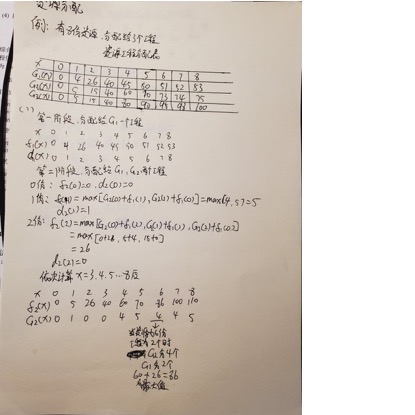 资源分配
例：有7份资源，分配给3个工程
资源工程分配表
x 0 1 2 3 4 5 6 7 8
G1(x) 0 4 26 40 45 50 51 52 53
G2(x) 0 5 15 40 60 70 73 74 75
G3(x) 0 5 15 40 80 90 95 98 100
(1)
第一阶段，分配给G1一个工程
x 0 1 2 3 4 5 6 7 8
f1(x) 0 4 26 40 45 50 51 52 53
d1(x) 0 1 2 3 4 5 6 7 8
第二阶段，分配给G1，G2两个工程
0倍：f2(0)=0，d2(0)=0
1倍：f2(1)=max[G2(0)+f1(1)，G2(1)+f1(0)]=max(4，5)=5
d2(1)=1
2倍：f2(2)=max[G2(0)+f1(2)，G2(1)+f1(1)，G2(2)+f1(0)]
=max[0+26，5+4，15+0]
=26
d2(2)=0
依次计算x=3，4，5…8后
x 0 1 2 3 4 5 6 7 8
f2(x) 0 5 26 40 60 70 86 100 110
G2(x) 0 1 0 0 4 5 4 4 5
↓
工程为2个时
G2有4个
G1有2个
60+26=86
为最大值